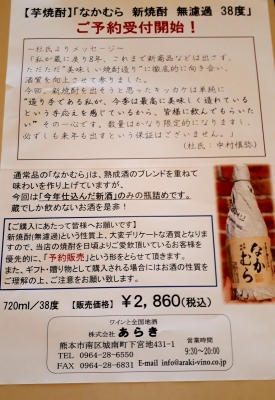 【芋焼酎】「なかむら 新焼酎 無濾過 38度」
ご予約受付開始！
～杜氏よりメッセージ～
「私が蔵に戻り8年、これまで新商品などは出さず、
ただただ“美味しい焼酎造り”に徹底的に向い合い、
酒質を向上させて参りました。
今回、新焼酎を出そうと思ったキッカケは単純に
“造り手である私が、今季は最高に美味しく造れている
という手応えを感じているから、皆様に飲んでもらいた
い”その一心です。数量はかなり限定的になりますし、
必ずしも来年も出すという保証はございません。」
（杜氏：中村慎弥）
通常品の「なかむら」は、熟成酒のブレンドを重ねて
味わいを作り上げていますが、
今回は「今年仕込んだ新酒」のみの瓶詰めです。
蔵でしか飲めないお酒を是非！
【ご購入にあたって皆様へお願いです】
新焼酎（無濾過）という性質上、大変デリケートな酒質となりま
すので、当店の焼酎を日頃よりご愛飲頂いているお客様を
優先的に、「予約販売」という形をとらせて頂きます。
また、ギフト・贈り物として購入される場合にはお酒の性質を
ご理解の上、ご注意をお願い致します。
なかむら
720ml／38度 【販売価格】 ￥2,860（税込）
ワインと全国地酒
株式会社 あらき
熊本市南区城南町下宮地431-1
TEL 0964-28-6550
FAX 0964-28-6831
営業時間
9：30～20：00
E-mail info@araki-vino.co.jp